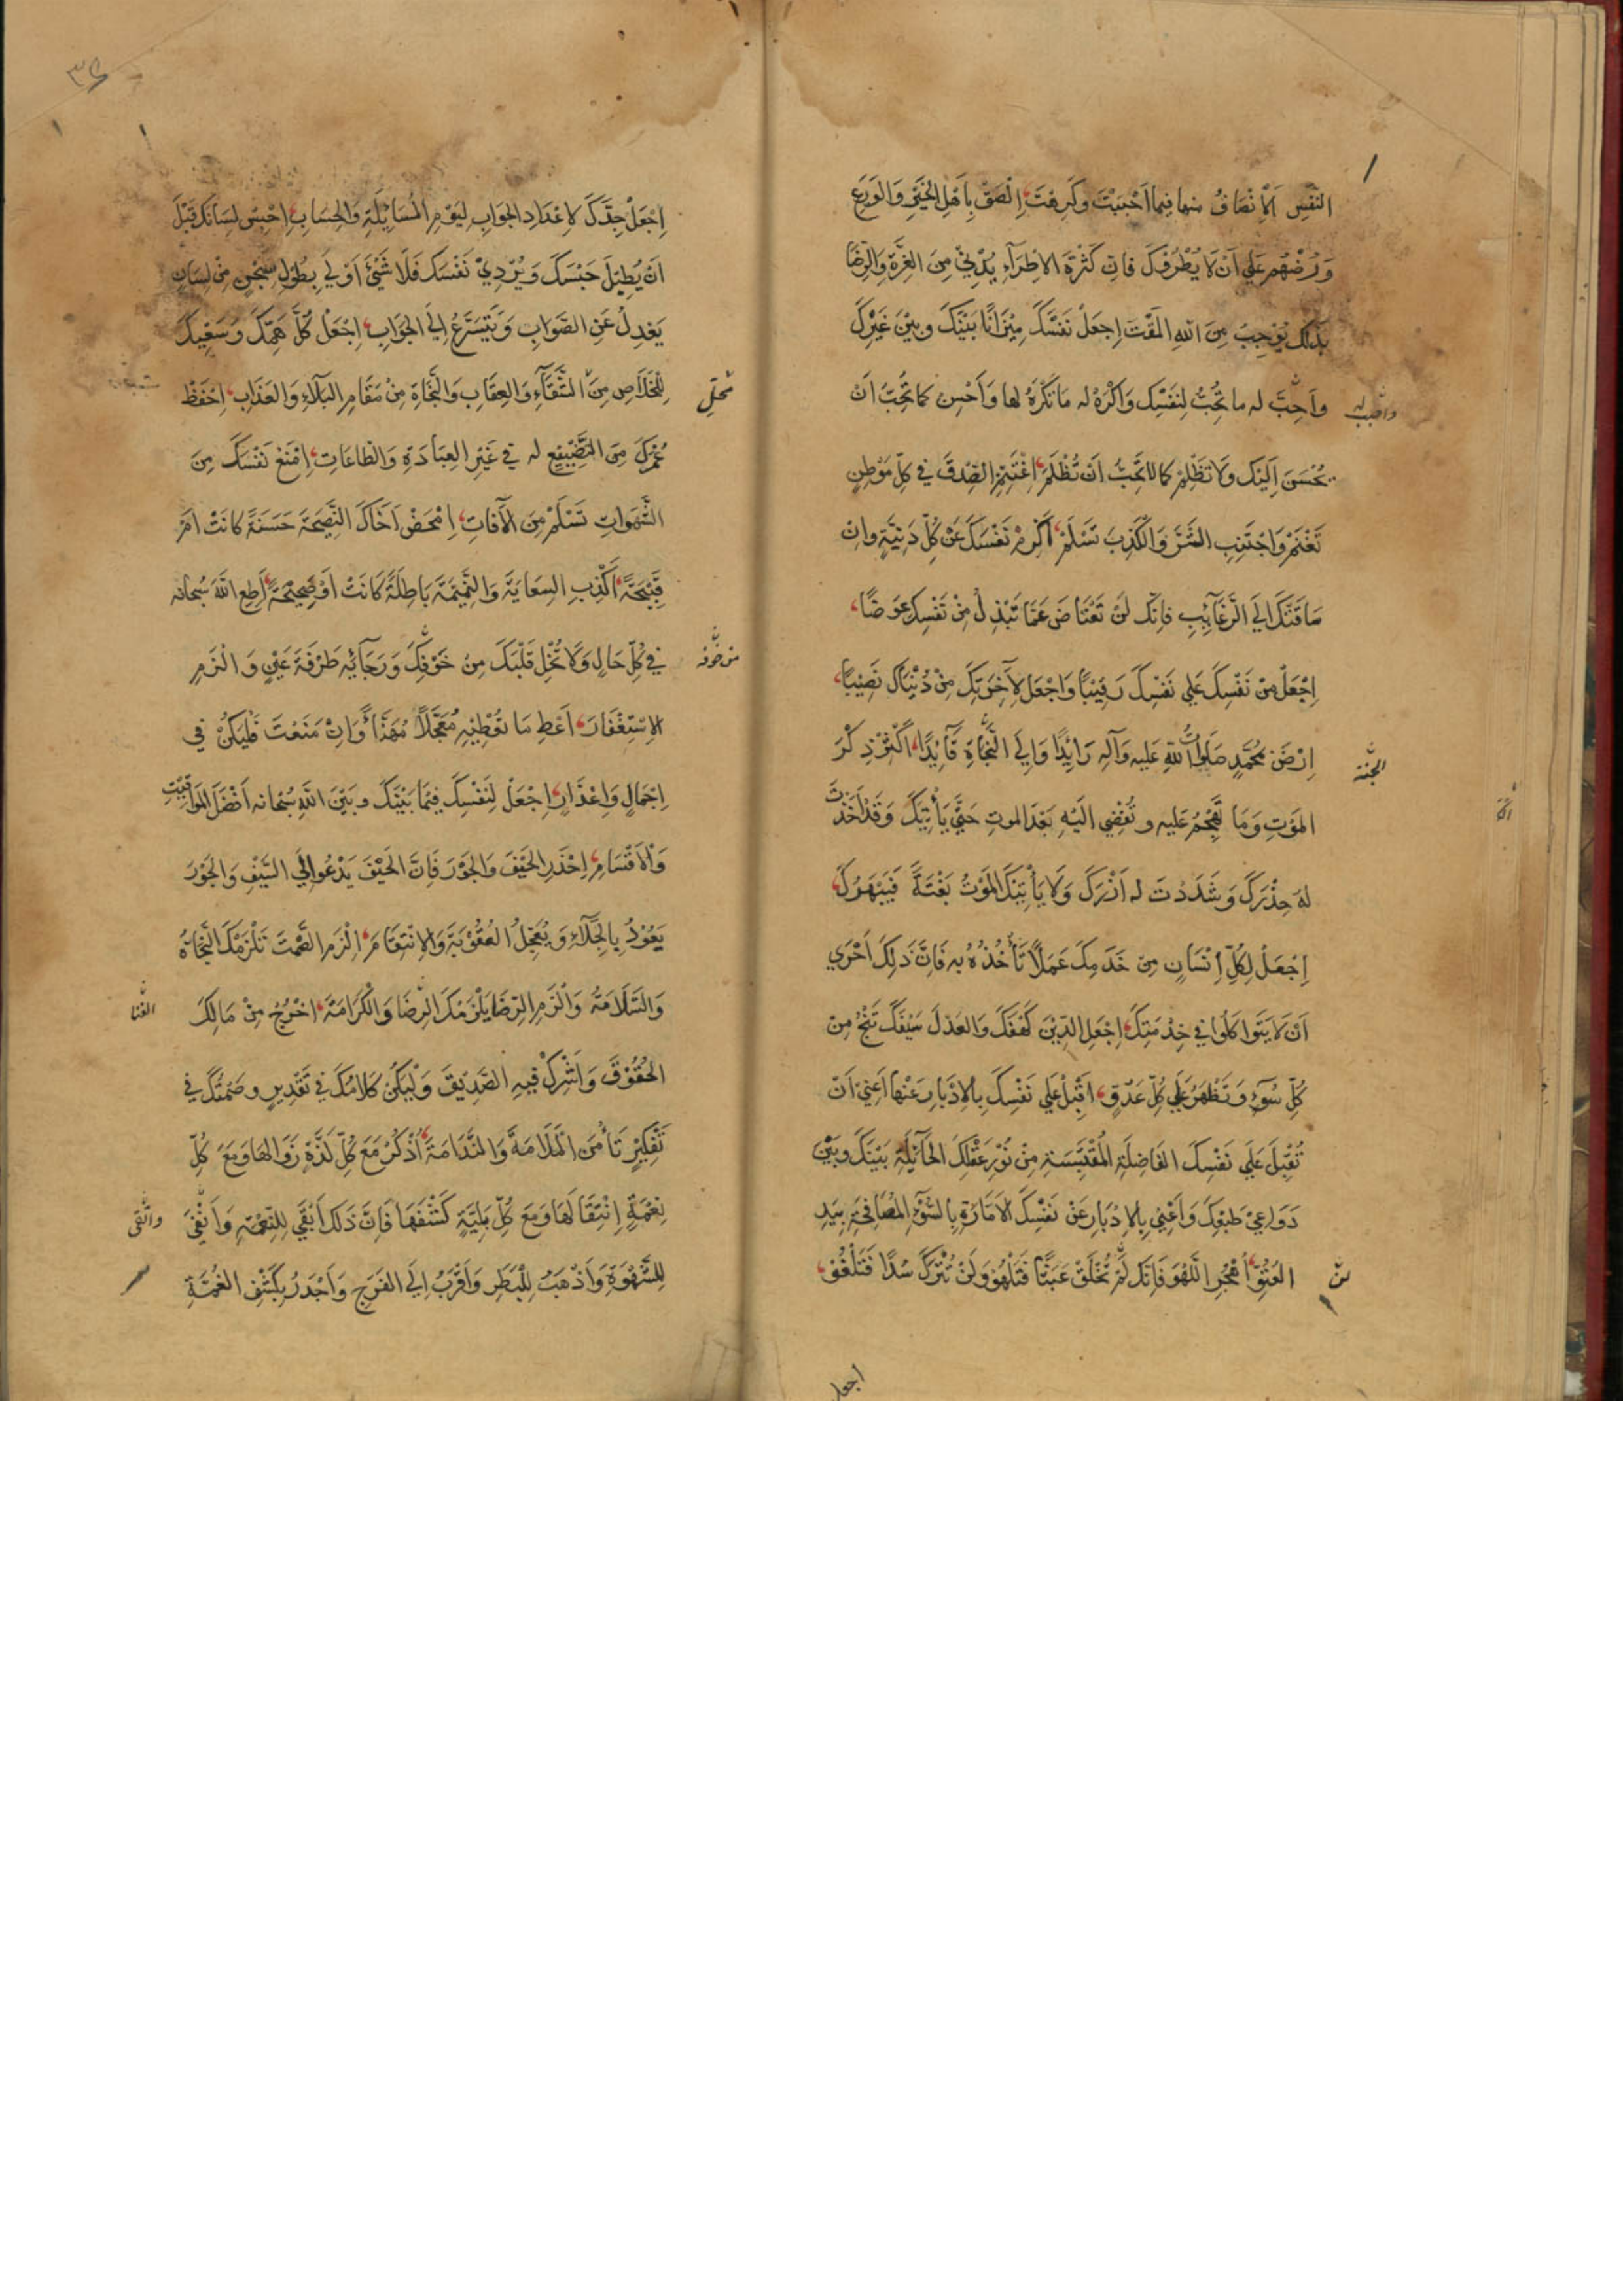 النَّفْسِ اَلْاِنْصَافُ منها فيما اَحْبَبْتَ وَكَرِهْتَ، اِلْصَقْ بِاَهْلِ الخَيْرِ وَالوَرَعِ
وَرُضْهُمْ عَلي اَنْ لَا يُطْرُوْكَ فَاِنَّ كَثْرَةَ الاِطْرَآءِ يُدْنِيْ مِنَ الغِرَّةِ وَالرِّضَا
بِذَلِكَ يُوْجِبُ مِنَ اللهِ المَقْتَ اِجعَلْ نَفْسَكَ مِيْزَانًا بَيْنَكَ وبيْنَ غَيْرِكَ
وَاَحِبَّ له ما تُحِبُّ لِنَفْسِكَ وَاكْرَهْ له مَا تَكْرَهُ لها وَاَحْسِن كما تُحِبُّ اَنْ
يُحْسَنَ اِلَيْكَ وَلَا تَظْلِمْ كما لا تُحِبُّ اَنْ تُظْلَمَ، اغْتَنِمِ الصِّدْقَ في كلِّ مَوْطِنٍ
تَغْنَمْ وَاجْتَنِبِ الشَّرَّ وَالْكَذِبَ تَسْلَمْ، اَكْرِمْ نَفْسَكَ عَنْ كلِّ دَنِيَّةٍ وان
سَاقَتْكَ اِلَي الرَّغَآئِبِ فاِنَّكَ لَنْ تَعْتَاضَ عَمَّا تَبْذِلُ مِنْ نَفْسِكَ عِوَضًا،
اِجْعَلْ مِنْ نَفْسِكَ عَلي نَفْسِكَ رَقِيْبًا وَاجْعَل لِآخِرَتِكَ مِنْ دُنْيَاكَ نَصِيْبًا،
اِرْضَ بمُحَمَّدٍ صَلَواتُ اللهِ عَلَيه وَآلِه رَائِدًا وَاِلَي النَّجَاةِ قَآئِدًا، اَكْثِرْ ذِكْرَ
المَوْتِ وَمَا تَهْجُمُ عَليه وتُفْضِي اِلَيْهِ بَعْدَ الموتِ حَتَّي يَأْتِيَكَ وَقَدْ اَخَذْتَ
لهُ حِذْرَكَ وَشَدَدْتَ له اَزْرَكَ وَلَا يَأْتِيَكَ المَوْتُ بَغْتَةً فَيَبْهَرَكَ،
اِجْعَلْ لِكُلِّ اِنْسَانٍ مِن خَدَمِكَ عَمَلاً تَأْخُذُهُ به فَاِنَّ ذَلِكَ اَحْرَي
اَنْ لَا يَتَوَاكَلُوا في خِدْمَتِكَ، اِجْعَلِ الدِّيْنَ كَهْفَكَ وَالعَدْلَ سَيْفَكَ تَنْجُ مِنْ
كُلِّ سُوْءٍ وَتَظْهَرْ عَلي كُلِّ عَدُوٍّ، اَقْبِلْ عَلي نَفْسِكَ بِالاِدْبَارِ عَنْها اَعْنِيْ اَنْ
تُقْبِلَ عَلَي نَفْسِكَ الفَاضِلَةِ المُقْتَبِسَةِ مِنْ نُوْرِ عَقْلِكَ الحَآئِلَةِ بَيْنَكَ وَبَيْنَ
دَوَاعِيْ طَبْعِكَ وَاَعْنِي بِالاِدْبَارِ عَنْ نَفْسِكَ الاَمَّارَةِ بِالسُّوْءِ المُصَافِحَةِ بِيَدِ
العُتُوِّ، اُهْجُرِ اللَّهْوَ فَاِنَّكَ لَمْ تُخْلَقْ عَبَثًا فَتَلْهُوَ وَلَنْ تُتْرَكَ سُدًا فَتَلْغُوَ،
وأحبب له
الجنّة
لن
اجعل
٣٤
اِجْعَلْ جِدَّكَ لِاِعْدَادِ الجَوَابِ لِيَوْمِ المُسَايَلَةِ وَالحِسَابِ، اِحْبِسْ لِسَانَكَ قَبْلَ
اَنْ يُطِيْلَ حَبْسَكَ وَيُرْدِيَ نَفْسَكَ فَلَا شَيْءَ اَوْلَي بِطُوْلِ سِجْنٍ مِنْ لِسَانٍ
يَعْدِلُ عَنِ الصَّوَابِ وَيَتَسَرَّعُ اِلَي الجَوَابِ، اِجْعَلْ كُلَّ هَمِّكَ وَسَعْيِكَ
لِلْخَلَاصِ مِنَ الشَّقَآءِ وَالعِقَابِ وَالنَّجَاةِ مِنْ مَقَامِ البَلَآءِ وَالعَذَابِ، اِحْفَظْ
عُمْرَكَ مِنَ التَّضْيِيْعِ له في غَيْرِ العِبَادَةِ وَالطَّاعَاتِ، اِمْنَعْ نَفْسَكَ مِنَ
الشَّهَوَاتِ تَسْلَمْ مِنَ الآفَاتِ، اِمْحَضْ اَخَاكَ النَّصِيْحَةَ حَسَنَةً كَانَتْ اَمْ
قَبِيْحَةً، اَكْذِبِ السِّعَايَةَ وَالنَّمِيْمَةَ بَاطِلَةً كَانَتْ اَوْ صَحِيْحَةً، اَطِعِ اللهَ سُبحانه
في كُلِّ حَالٍ وَلَا تُخْلِ قَلْبَكَ مِنْ خَوْفِكَ وَرَجَآئِه طَرْفَةَ عَيْنٍ وَالْزَمِ
الاِسْتِغْفَارَ، اَعْطِ مَا تُعْطِيْهِ مُعَجَّلاً مُهَنَّأً وَاِنْ مَنَعْتَ فَلْيَكُنْ في
اِجْمَالٍ وَاِعْذَارٍ، اِجْعَلْ لِنَفْسِكَ فِيْمَا بَيْنَكَ وبَيْنَ اللهِ سُبْحَانه اَفْضَلَ المَوَاقِيْتِ
وَالاَقْسَامِ، اِحْذَرِ الحَيْفَ وَالجَوْرَ فَاِنَّ الحَيْفَ يَدْعُو اِلَي السَّيْفِ وَالجَوْرَ
يَعُوْدُ بِالجَلَآءِ وَيُعَجِّلُ العُقُوْبَةَ وَالاِنْتِقَامَ، اِلْزَمِ الصَّمْتَ تَلْزَمْكَ النَّجَاةُ
وَالسَّلَامَةُ وَالْزَمِ الرِّضَا يَلْزَمْكَ الرِّضَا وَالْكَرَامَةُ، اخْرُجْ مِنْ مَالِكَ
الحُقُوْقَ وَاَشْرِكْ فِيهِ الصَّدِيْقَ وَلْيَكُنْ كَلَامُكَ في تَقْدِيْرٍ وصَمْتُكَ في
تَفْكِيْرٍ تَأْمَنَ المَلَامَةَ وَالنَّدَامَةَ، اُذْكُرْ مَعَ كُلِّ لَذَّةٍ زَوَالهَا وَمَعَ كُلِّ
نِعْمَةٍ اِنْتِقَالَهَا وَمَعَ كُلِّ بَلِيَّةٍ كَشْفَهَا فَاِنَّ ذَلكَ اَبْقَي لِلنِّعْمَةِ وَاَنْفَي
لِلشَّهْوَةِ وَاَذْهَبُ لِلْبَطَرِ وَاَقْرَبُ اِلَي الفَرَجِ وَاَجْدَرُ بِكَشْفِ الغُمَّةِ
محلّ
من خوفه
الغنا
واتقى